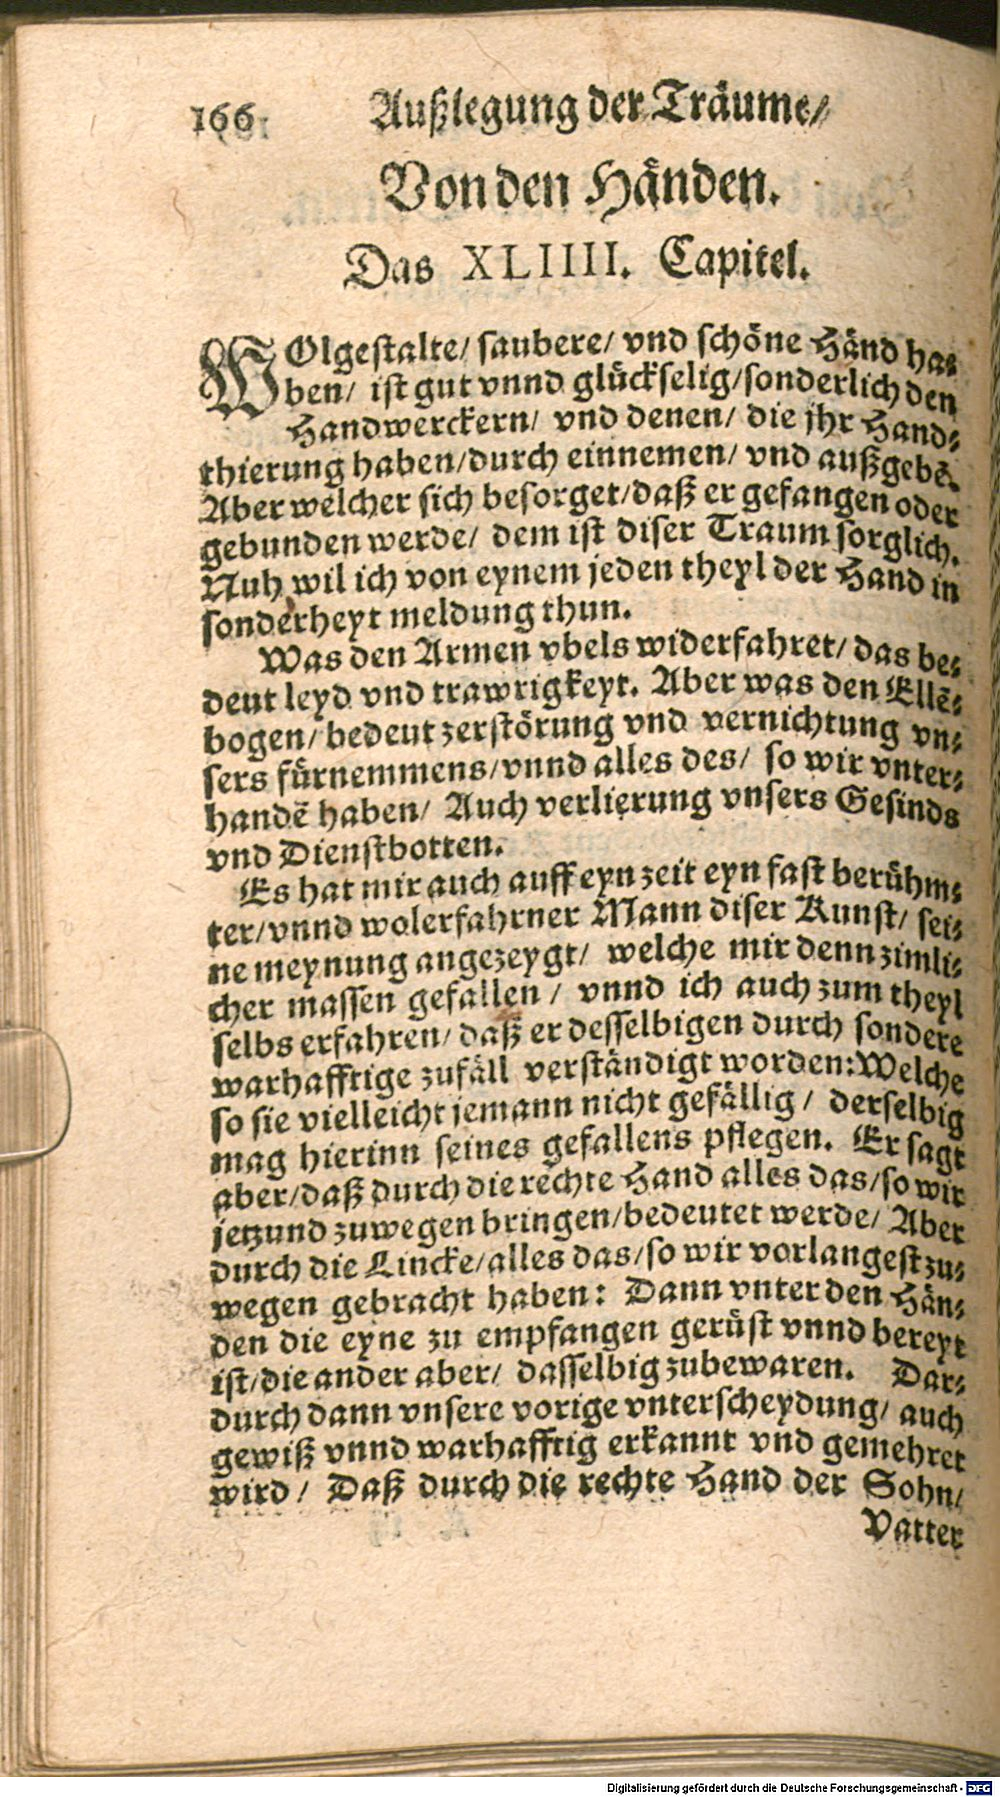 166 Außlegung der Träume/
Von den Händen.
Das XLIIII. Capitel.
WOlgestalte/ saubere/ vnd schöne Händ ha⸗
ben/ ist gut vnnd glückselig/sonderlich den
Handwerckern/ vnd denen/ die jhr Hand⸗
thierung haben/durch einnemen/ vnd außgebẽ.
Aber welcher sich besorget/daß er gefangen oder
gebunden werde/ dem ist diser Traum sorglich.
Nuh wil ich von eynem jeden theyl der Hand in
sonderheyt meldung thun.
Was den Armen vbels widerfahret/ das be⸗
deut leyd vnd trawrigkeyt. Aber was den Ellẽ⸗
bogen/ bedeut zerstörung vnd vernichtung vn⸗
sers fürnemmens/vnnd alles des/ so wir vnter⸗
handẽ haben/ Auch verlierung vnsers Gesinds
vnd Dienstbotten.
Es hat mir auch auff eyn zeit eyn fast berühm⸗
ter/vnnd wolerfahrner Mann diser Kunst/ sei⸗
ne meynung angezeygt/ welche mir denn zimli⸗
cher massen gefallen/ vnnd ich auch zum theyl
selbs erfahren/ daß er desselbigen durch sondere
warhafftige zufäll verständigt worden: Welche
so sie vielleicht jemann nicht gefällig/ derselbig
mag hierinn seines gefallens pflegen. Er sagt
aber/daß durch die rechte Hand alles das/so wir
jetzund zuwegen bringen/bedeutet werde/ Aber
durch die Lincke/alles das/so wir vorlangest zu⸗
wegen gebracht haben: Dann vnter den Hän⸗
den die eyne zu empfangen gerüst vnnd bereyt
ist/die ander aber/ dasselbig zubewaren. Dar⸗
durch dann vnsere vorige vnterscheydung/ auch
gewiß vnnd warhafftig erkannt vnd gemehret
wird/ Daß durch die rechte Hand der Sohn/
Vatter
Digitalisierung gefördert durch die Deutsche Forschungsgemeinschaft - DFG